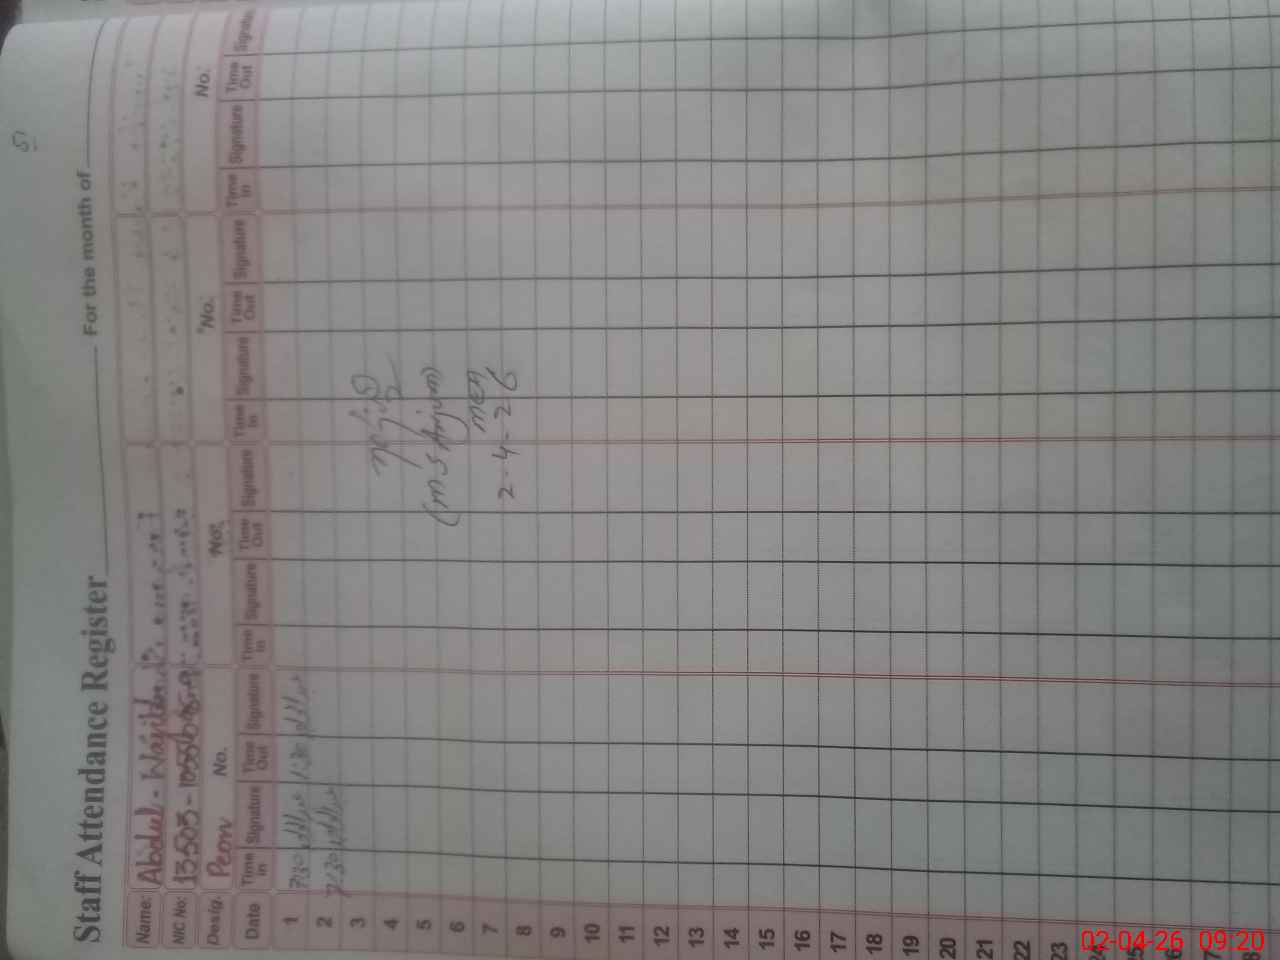 5
Staff Attendance Register For the month of
Name: Abdul - Waji
NIC No: 13503-
Desig. Peon No. No. No. No.
Date Time In Signature Time Out Signature Time In Signature Time Out Signature Time In Signature Time Out Signature Time In Signature Time Out Signatu
1 7:30 1:30
2 7:30
3
4
5 (M.S Anjum)
6
7 MEA
8 2-4-26
9
10
11
12
13
14
15
16
17
18
19
20
21
22
23
24
25
26
7
8
02-04-26 09:20